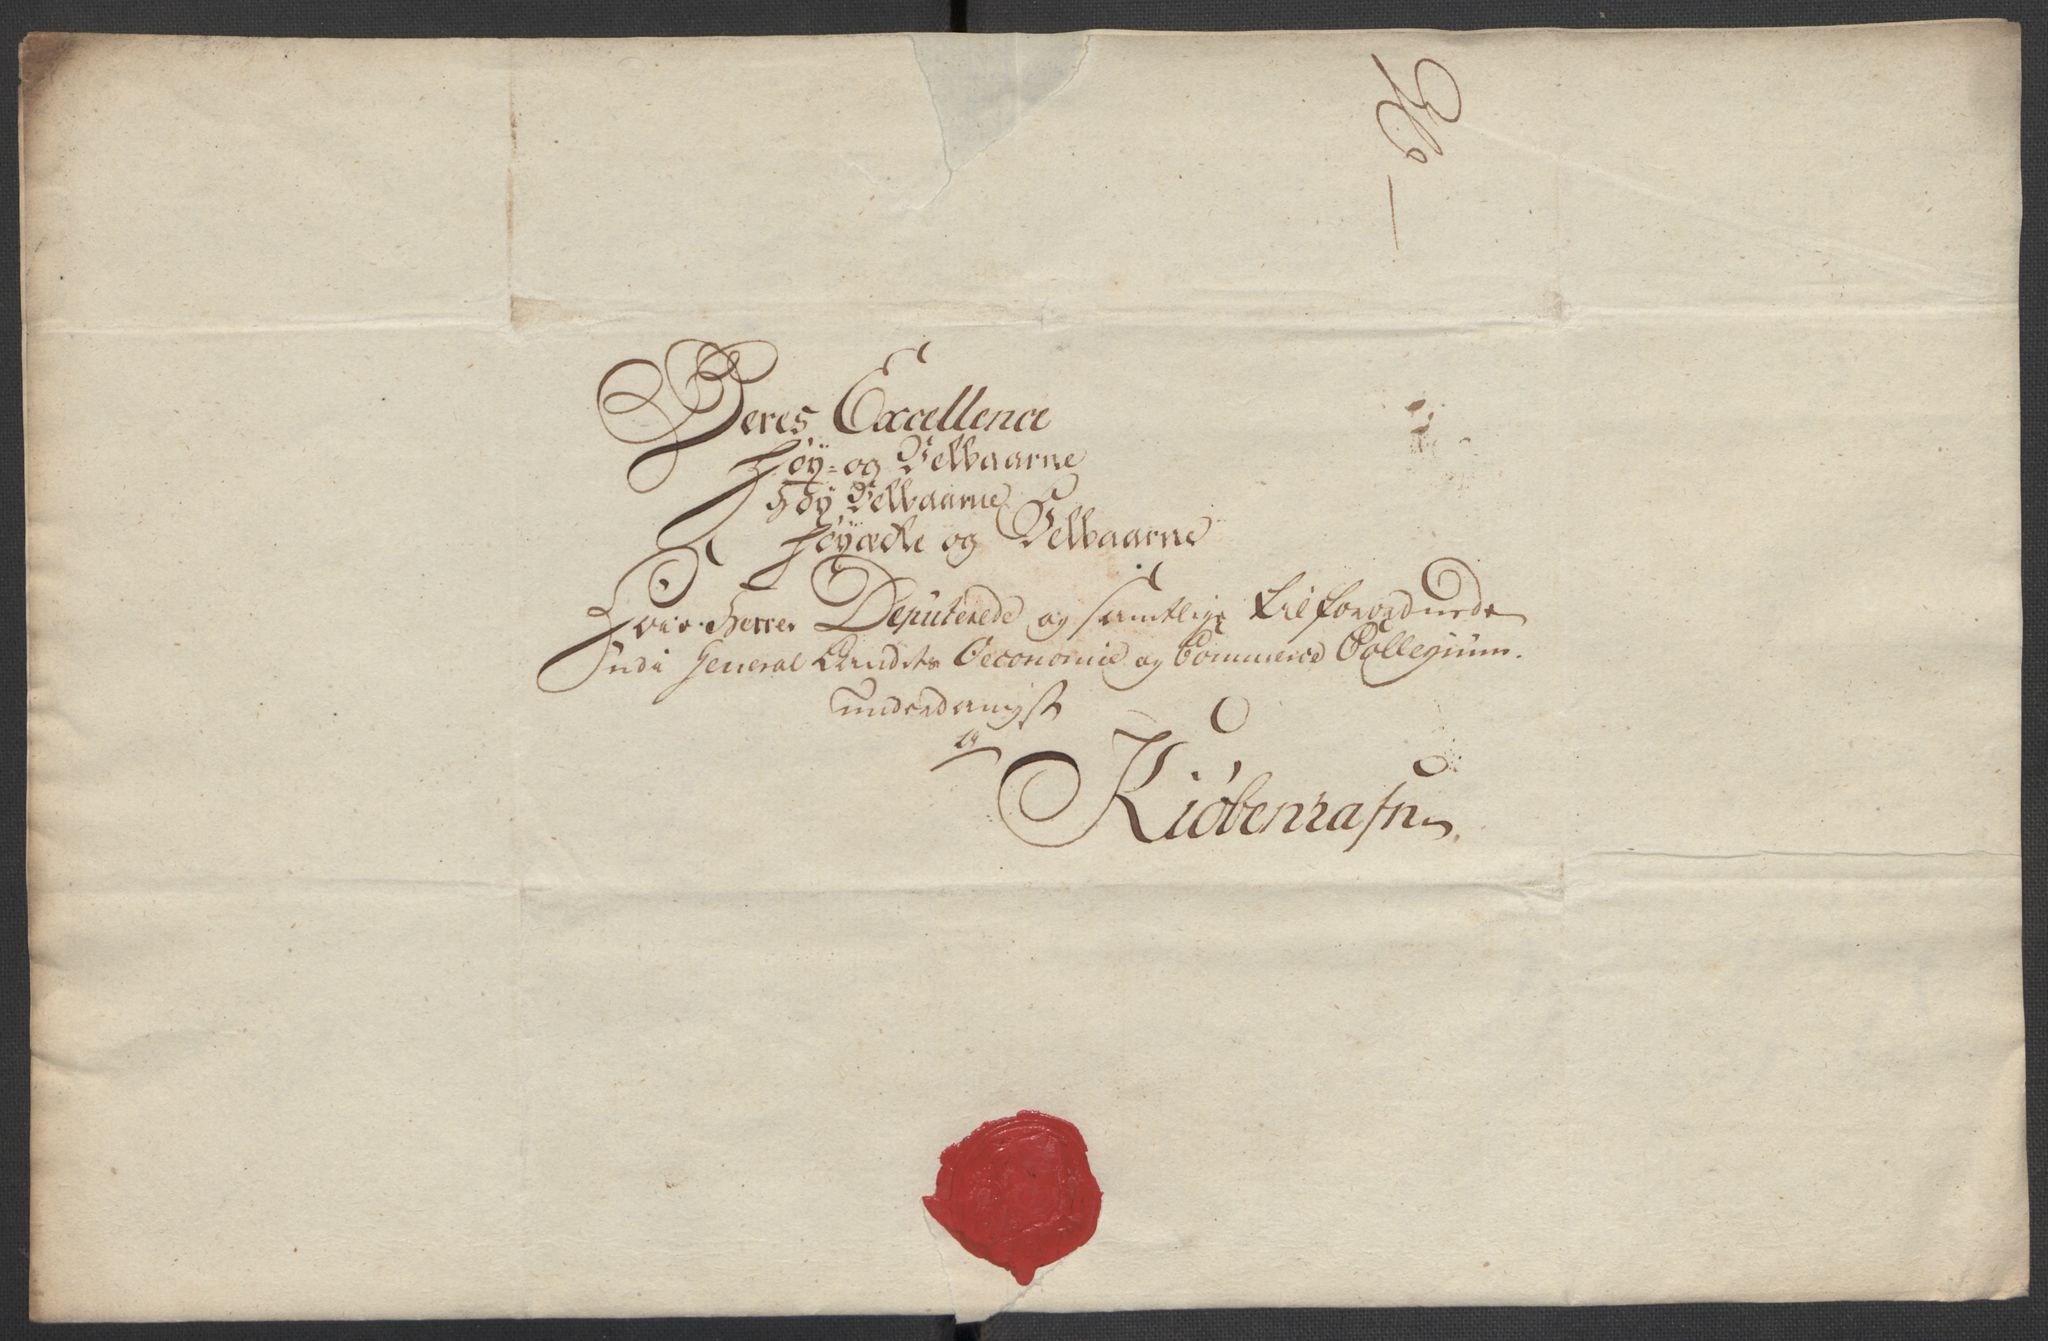 Deres Excellence
Høy- og Velbaarne
Høy Velbaarne
Høyædle og Velbaarne
Herrer Deputerede og samtlige tilforordnede
Udi General Landets Oeconomie og Commerce Collegium.
underdanigst
a
Kiøbenhafn